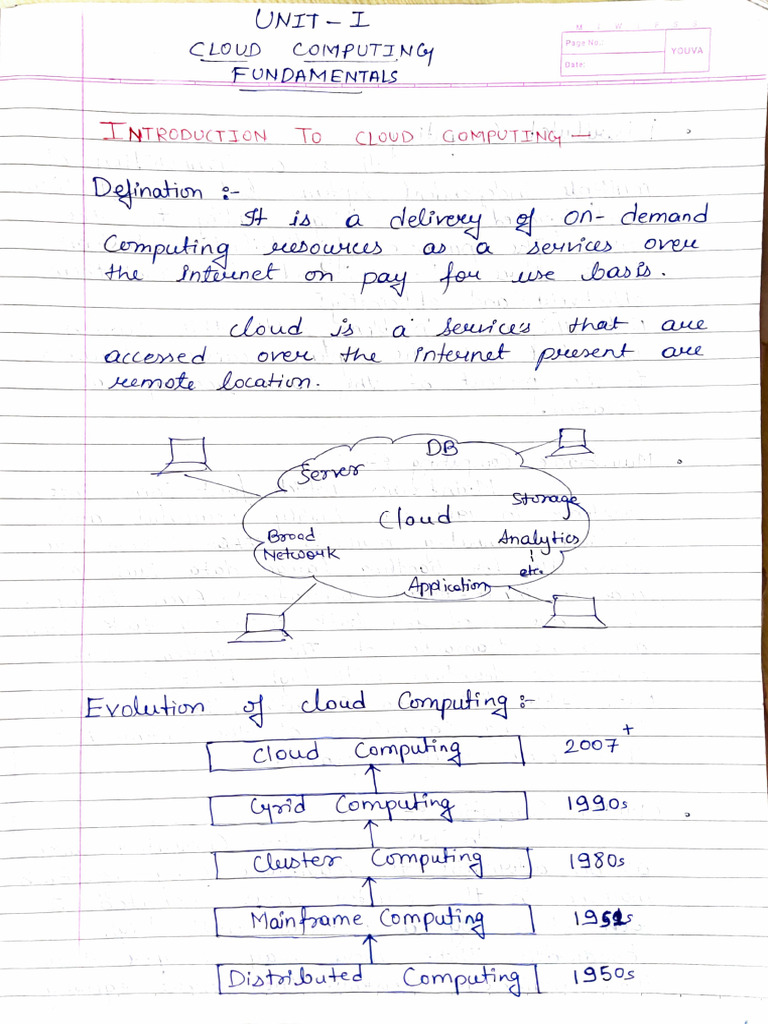 UNIT-I
CLOUD COMPUTING
FUNDAMENTALS
Page No.:
Date:
YOUVA
INTRODUCTION TO CLOUD COMPUTING —
Defination :-
It is a delivery of on-demand
Computing resources as a services over
the internet on pay for use basis.
cloud is a services that are
accessed over the internet present are
remote location.
DB
Server
Storage
Cloud
Broad
Network
Analytics
etc.
Application
Evolution of cloud Computing :-
Cloud Computing 2007+
Grid Computing 1990s
Cluster Computing 1980s
Mainframe Computing
Distributed Computing 1950s